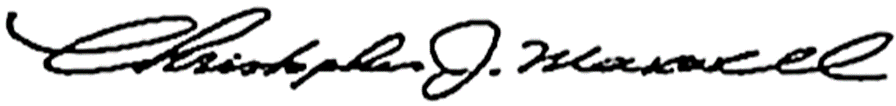 Christopher J. Maxwell